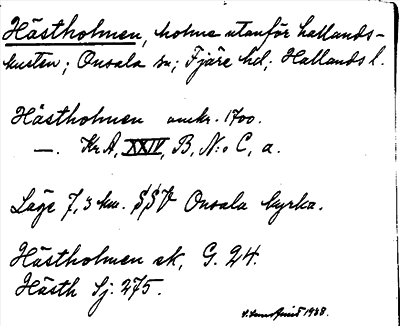 Hästholmen, holme utanför hallands-
kusten; Onsala sn; Fjäre hd; Hallands l.
Hästholmen omkr. 1700.
—. KrA, XXIV, B, N:o C, a.
Läge 7,3 km. SSV Onsala kyrka.
Hästholmen ek, G. 24.
Hästh Sj: 275.
1928.